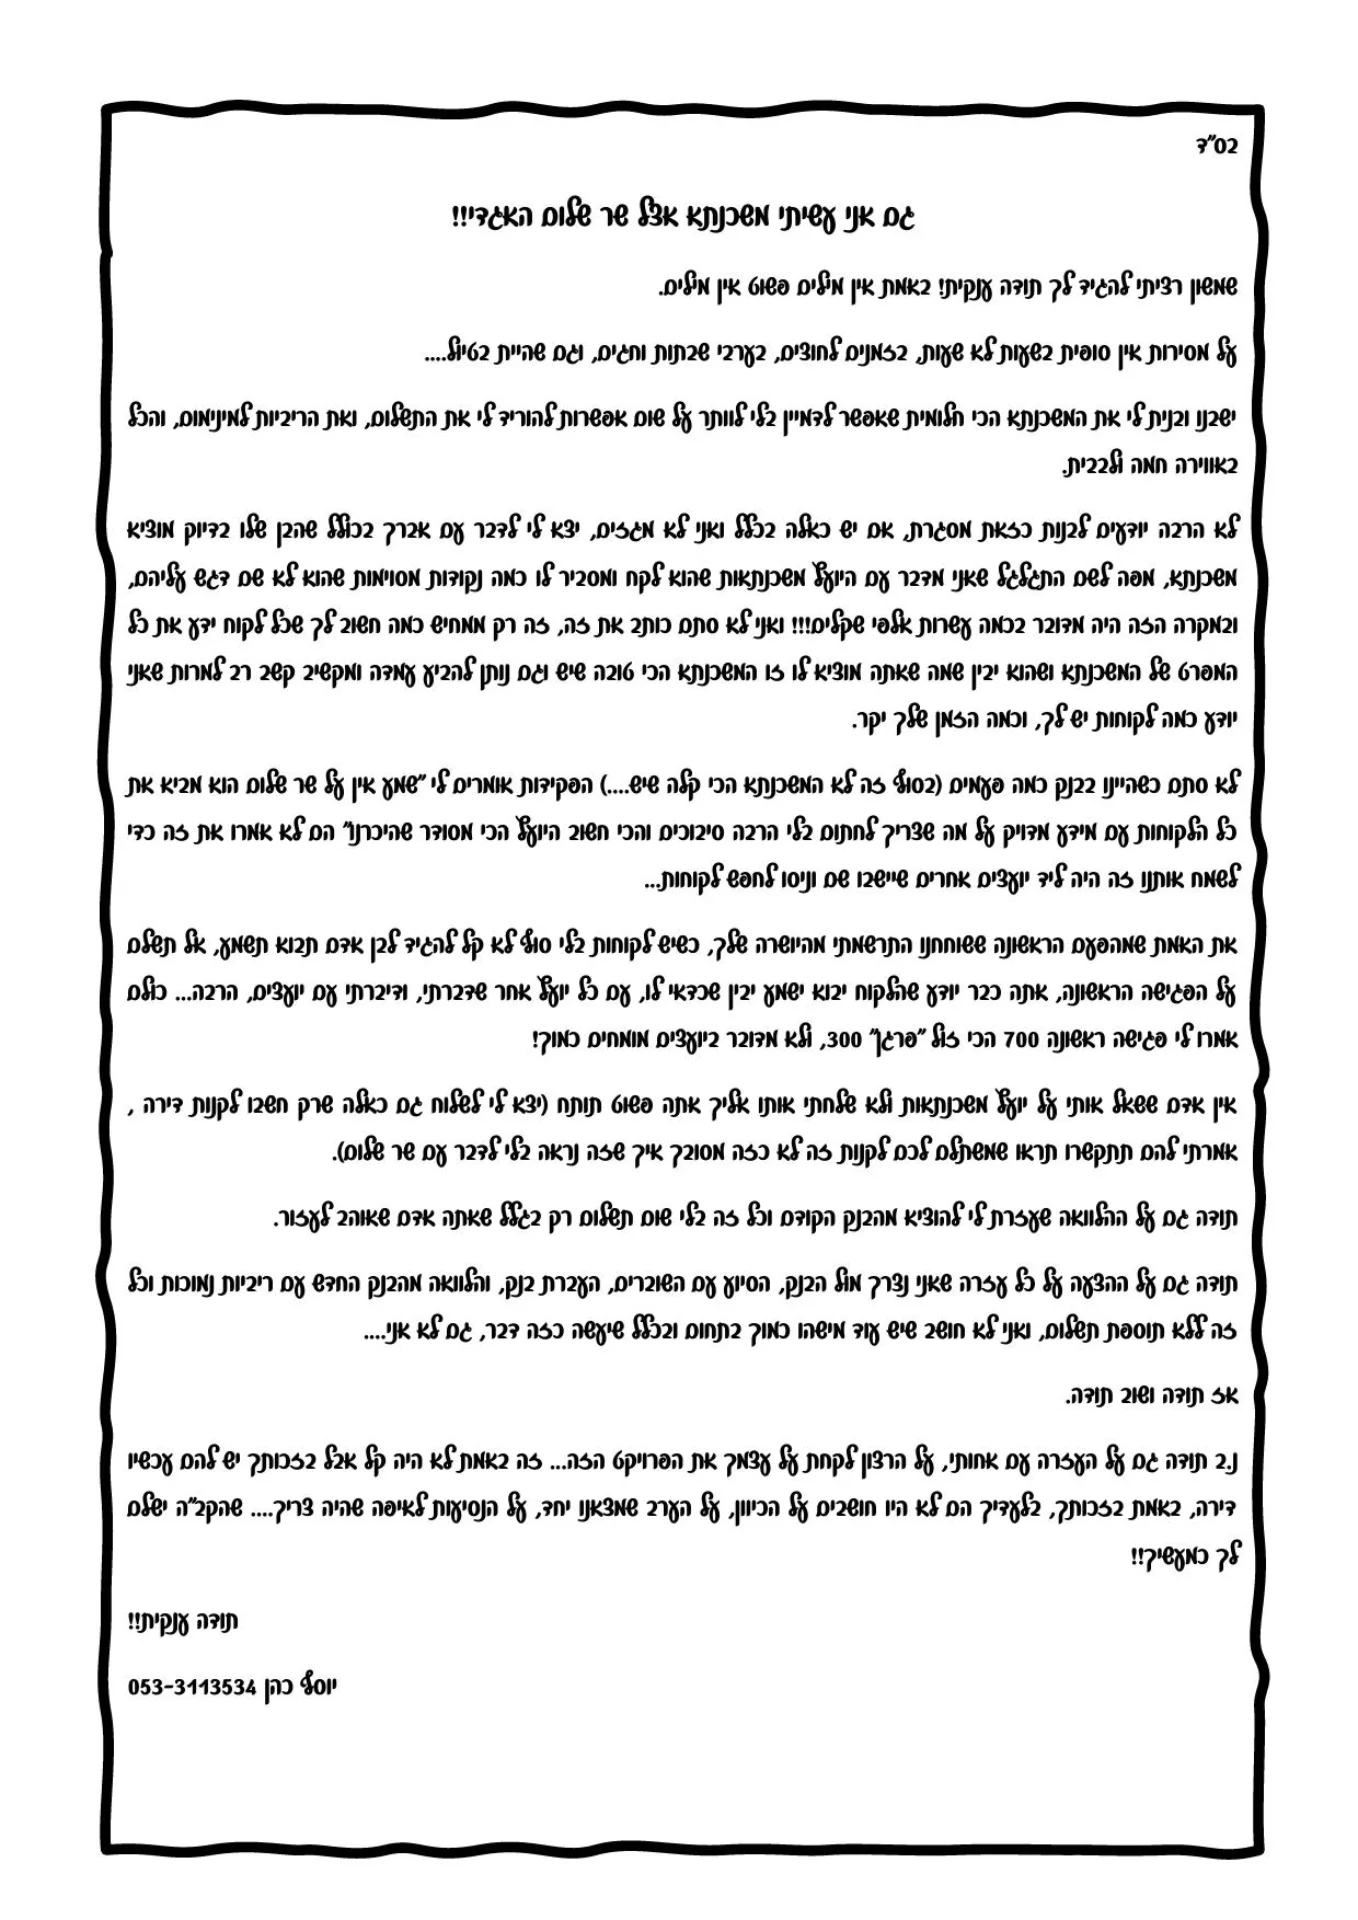 בס"ד
גם אני עשיתי משכנתא אצל שר שלום האגדי!!
שמשון רציתי להגיד לך תודה ענקית! באמת אין מילים פשוט אין מילים.
על מסירות אין סופית בשעות לא שעות, בזמנים לחוצים, בערבי שבתות וחגים, וגם שהיית בטיול....
ישבנו ובנית לי את המשכנתא הכי חלומית שאפשר לדמיין בלי לוותר על שום אפשרות להוריד לי את התשלום, ואת הריביות למינימום, והכל
באווירה חמה ולבבית.
לא הרבה יודעים לבנות כזאת מסגרת, אם יש כאלה בכלל ואני לא מגזים, יצא לי לדבר עם אברך בכולל שהבן שלו בדיוק מוציא
משכנתא, מפה לשם התגלגל שאני מדבר עם היועץ משכנתאות שהוא לקח ומסביר לו כמה נקודות מסוימות שהוא לא שם דגש עליהם,
ובמקרה הזה היה מדובר בכמה עשרות אלפי שקלים!!! ואני לא סתם כותב את זה, זה רק ממחיש כמה חשוב לך שכל לקוח ידע את כל
המפרט של המשכנתא ושהוא יבין שמה שאתה מוציא לו זו המשכנתא הכי טובה שיש וגם נותן להביע עמדה ומקשיב קשב רב למרות שאני
יודע כמה לקוחות יש לך, וכמה הזמן שלך יקר.
לא סתם כשהיינו בבנק כמה פעמים (בסוף זה לא המשכנתא הכי קלה שיש....) הפקידות אומרים לי "שמע אין על שר שלום הוא מביא את
כל הלקוחות עם מידע מדויק על מה שצריך לחתום בלי הרבה סיבוכים והכי חשוב היועץ הכי מסודר שהיכרנו" הם לא אמרו את זה כדי
לשמח אותנו זה היה ליד יועצים אחרים שיישבו שם וניסו לחפש לקוחות...
את האמת שמהפעם הראשונה ששוחחנו התרשמתי מהיושרה שלך, כשיש לקוחות בלי סוף לא קל להגיד לבן אדם תבוא תשמע, אל תשלם
על הפגישה הראשונה, אתה כבר יודע שהלקוח יבוא ישמע יבין שכדאי לו, עם כל יועץ אחר שדברתי, ודיברתי עם יועצים, הרבה... כולם
אמרו לי פגישה ראשונה 700 הכי זול "פרגן" 300, ולא מדובר ביועצים מומחים כמוך!
אין אדם ששאל אותי על יועץ משכנתאות ולא שלחתי אותו אליך אתה פשוט תותח (יצא לי לשלוח גם כאלה שרק חשבו לקנות דירה ,
אמרתי להם תתקשרו תראו שמשתלם לכם לקנות זה לא כזה מסובך איך שזה נראה בלי לדבר עם שר שלום).
תודה גם על ההלוואה שעזרת לי להוציא מהבנק הקודם וכל זה בלי שום תשלום רק בגלל שאתה אדם שאוהב לעזור.
תודה גם על ההצעה על כל עזרה שאני נצרך מול הבנק, הסיוע עם השוברים, העברת בנק, והלוואה מהבנק החדש עם ריביות נמוכות וכל
זה ללא תוספת תשלום, ואני לא חושב שיש עוד מישהו כמוך בתחום ובכלל שיעשה כזה דבר, גם לא אני....
אז תודה ושוב תודה.
נ.ב תודה גם על העזרה עם אחותי, על הרצון לקחת על עצמך את הפרויקט הזה... זה באמת לא היה קל אבל בזכותך יש להם עכשיו
דירה, באמת בזכותך, בלעדיך הם לא היו חושבים על הכיוון, על הערב שמצאנו יחד, על הנסיעות לאיפה שהיה צריך.... שהקב"ה ישלם
לך כמעשיך!!
תודה ענקית!!
יוסף כהן 053-3113534